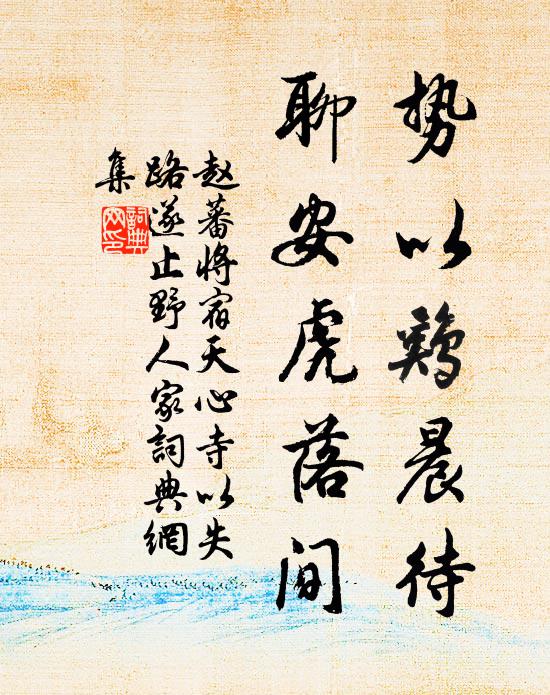 势以鸡晨待
聊安虎落间
赵蕃将宿天心寺以失
路遂止野人家詞典網
集
詞典网印